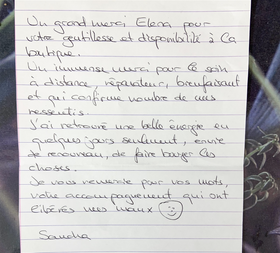 Un grand merci Elena pour
votre gentillesse et disponibilité à la
boutique.
Un immense merci pour ce soin
à distance, réparateur, bienfaisant
et qui confirme nombre de mes
ressentis.
J'ai retrouvé une belle énergie en
quelques jours seulement, envie
de renouveau, de faire bouger les
choses.
Je vous remercie pour vos mots,
votre accompagnement qui ont
libérés mes maux
Sandra